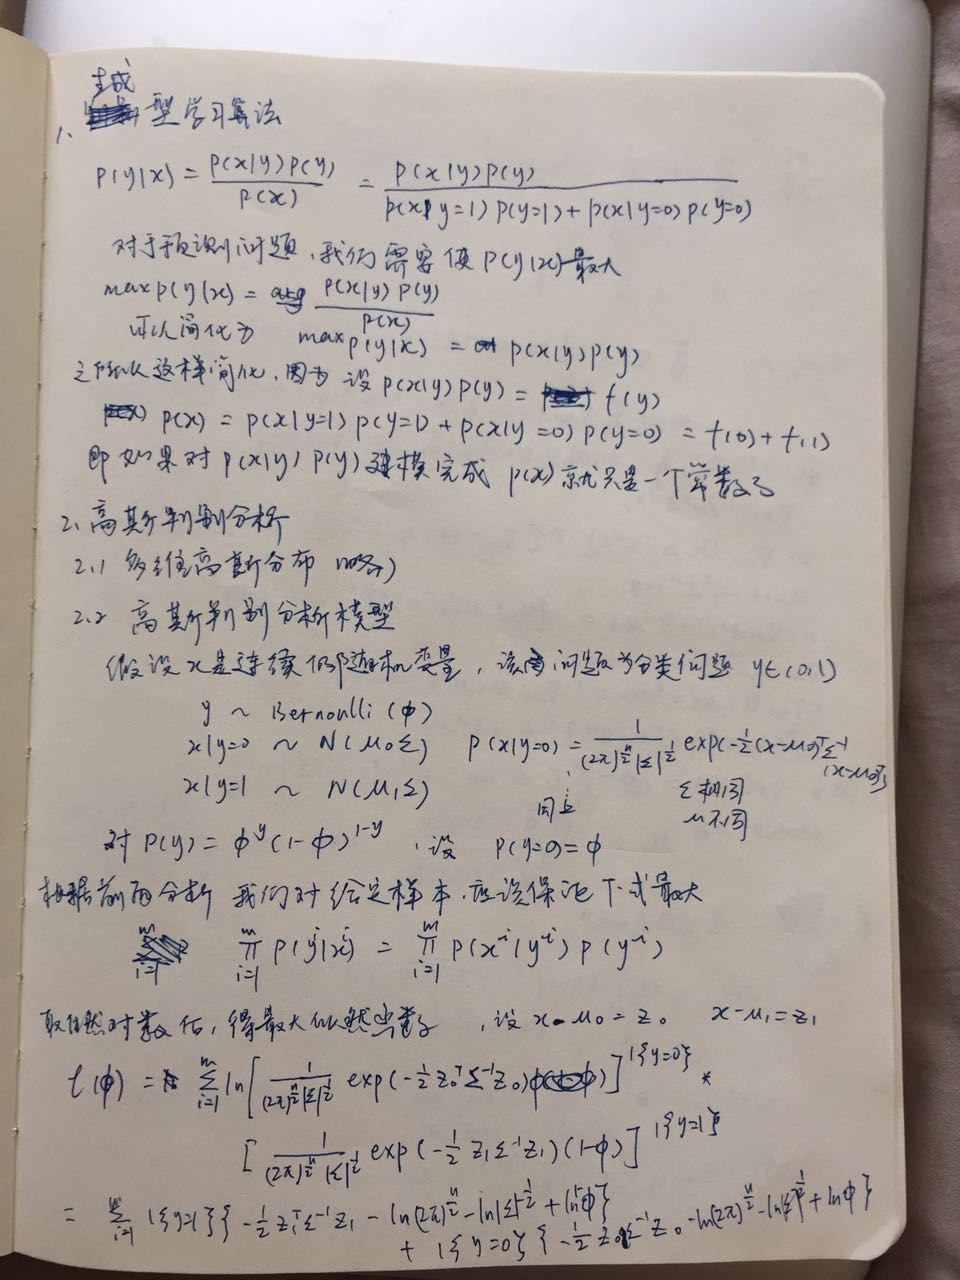 生成
1、型学习算法
P(y|x) = P(x|y)P(y) / P(x) = P(x|y)P(y) / P(x|y=1)P(y=1)+P(x|y=0)P(y=0)
对于预测问题，我们需要使P(y|x)最大
max P(y|x) = P(x|y)P(y) / P(x)
可以简化为 max P(y|x) = P(x|y)P(y)
之所以这样简化，因为设P(x|y)P(y) = f(y)
P(x) = P(x|y=1)P(y=1)+P(x|y=0)P(y=0) = f(0)+f(1)
即如果对P(x|y)P(y)建模完成 P(x)就只是一个常数了
2、高斯判别分析
2.1 多维高斯分布（略）
2.2 高斯判别分析模型
假设x是连续的随机变量，该问题为分类问题 y∈(0,1)
y ~ Bernoulli(φ)
x|y=0 ~ N(μ₀Σ) P(x|y=0) = 1/((2π)^(n/2)|Σ|^(1/2)) exp(-1/2(x-μ₀)ᵀΣ⁻¹(x-μ₀))
x|y=1 ~ N(μ₁Σ) 同上 Σ相同
μ不同
对P(y) = φ^y(1-φ)^(1-y)，设 P(y=0)=φ
根据前面分析 我们对给定样本，应该保证下式最大
∏_(i=1)^m P(yⁱ|xⁱ) = ∏_(i=1)^m P(xⁱ|yⁱ)P(yⁱ)
取自然对数后，得最大似然函数，设x-μ₀=z₀ x-μ₁=z₁
ℓ(φ) = Σ_(i=1)^m ln[1/((2π)^(n/2)|Σ|^(1/2)) exp(-1/2 z₀ᵀΣ⁻¹z₀)φ]^(1{y=0}) *
[1/((2π)^(n/2)|Σ|^(1/2)) exp(-1/2 z₁Σ⁻¹z₁)(1-φ)]^(1{y=1})
= Σ_(i=1) 1{y=1}{-1/2 z₁ᵀΣ⁻¹z₁ - ln(2π)^(n/2) - ln|Σ|^(1/2) + lnφ}
+ 1{y=0}{-1/2 z₀Σ⁻¹z₀ - ln(2π)^(n/2) - ln|Σ|^(1/2) + lnφ}